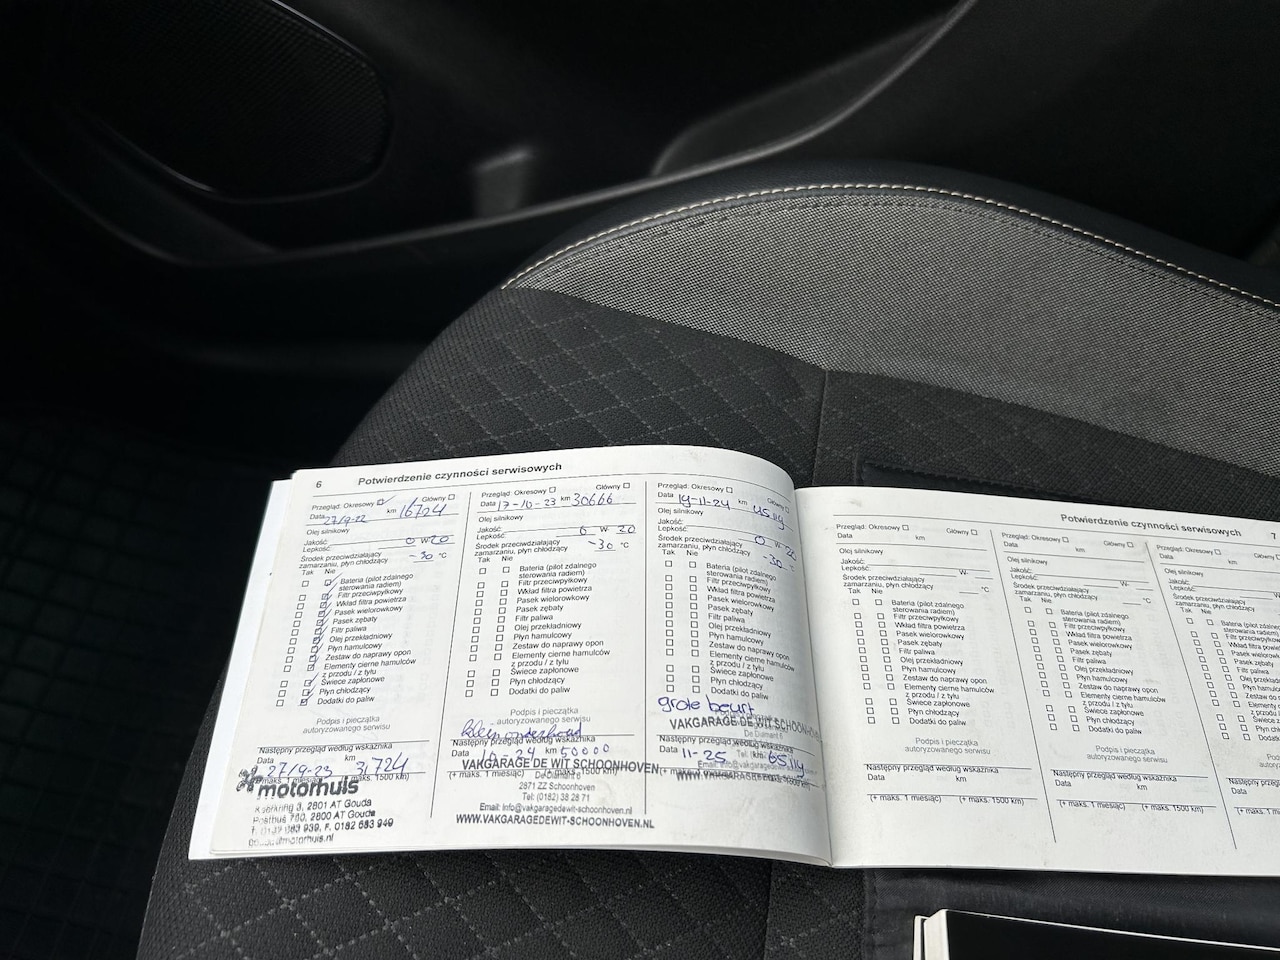 6 Potwierdzenie czynności serwisowych
Przegląd: Okresowy Główny
Data 27/9-22 km 16724
Olej silnikowy
Jakość:
Lepkość: 0 W 20
Środek przeciwdziałający
zamarzaniu, płyn chłodzący -30 °C
Tak Nie
Bateria (pilot zdalnego
sterowania radiem)
Filtr przeciwpyłkowy
Wkład filtra powietrza
Pasek wielorowkowy
Pasek zębaty
Filtr paliwa
Olej przekładniowy
Płyn hamulcowy
Zestaw do naprawy opon
Elementy cierne hamulców
z przodu / z tyłu
Świece zapłonowe
Płyn chłodzący
Dodatki do paliw
Podpis i pieczątka
autoryzowanego serwisu
Następny przegląd według wskaźnika
Data km
27/9-23 31724
(+ maks. 1 miesiąc) (+ maks. 1500 km)
motorhuis
2801 AT Gouda
Postbus 700, 2800 AT Gouda
F. 0182 683 949
Przegląd: Okresowy Główny
Data 17-10-23 km 30666
Olej silnikowy
Jakość:
Lepkość: 0 W 20
Środek przeciwdziałający
zamarzaniu, płyn chłodzący -30 °C
Tak Nie
Bateria (pilot zdalnego
sterowania radiem)
Filtr przeciwpyłkowy
Wkład filtra powietrza
Pasek wielorowkowy
Pasek zębaty
Filtr paliwa
Olej przekładniowy
Płyn hamulcowy
Zestaw do naprawy opon
Elementy cierne hamulców
z przodu / z tyłu
Świece zapłonowe
Płyn chłodzący
Dodatki do paliw
Podpis i pieczątka
autoryzowanego serwisu
klein onderhoud
Następny przegląd według wskaźnika
Data 10-24 km 50000
(+ maks. 1 miesiąc) (+ maks. 1500 km)
VAKGARAGE DE WIT SCHOONHOVEN
De Diamant 6
2871 ZZ Schoonhoven
Tel: (0182) 38 28 71
Email: info@vakgaragedewit-schoonhoven.nl
WWW.VAKGARAGEDEWIT-SCHOONHOVEN.NL
Przegląd: Okresowy Główny
Data 19-11-24 km
Olej silnikowy
Jakość:
Lepkość: 0 W 20
Środek przeciwdziałający
zamarzaniu, płyn chłodzący 30 °C
Tak Nie
Bateria (pilot zdalnego
sterowania radiem)
Filtr przeciwpyłkowy
Wkład filtra powietrza
Pasek wielorowkowy
Pasek zębaty
Filtr paliwa
Olej przekładniowy
Płyn hamulcowy
Zestaw do naprawy opon
Elementy cierne hamulców
z przodu / z tyłu
Świece zapłonowe
Płyn chłodzący
Dodatki do paliw
grote beurt
VAKGARAGE DE WIT SCHOONHOVEN
De Diamant 6
Następny przegląd według wskaźnika
Data 11-25 km
Potwierdzenie czynności serwisowych 7
Przegląd: Okresowy Główny
Data km
Olej silnikowy
Jakość:
Lepkość: W-
Środek przeciwdziałający
zamarzaniu, płyn chłodzący °C
Tak Nie
Bateria (pilot zdalnego
sterowania radiem)
Filtr przeciwpyłkowy
Wkład filtra powietrza
Pasek wielorowkowy
Pasek zębaty
Filtr paliwa
Olej przekładniowy
Płyn hamulcowy
Zestaw do naprawy opon
Elementy cierne hamulców
z przodu / z tyłu
Świece zapłonowe
Płyn chłodzący
Dodatki do paliw
Podpis i pieczątka
autoryzowanego serwisu
Następny przegląd według wskaźnika
Data km
(+ maks. 1 miesiąc) (+ maks. 1500 km)
Przegląd: Okresowy Główny
Data km
Olej silnikowy
Jakość:
Lepkość: W-
Środek przeciwdziałający
zamarzaniu, płyn chłodzący °C
Tak Nie
Bateria (pilot zdalnego
sterowania radiem)
Filtr przeciwpyłkowy
Wkład filtra powietrza
Pasek wielorowkowy
Pasek zębaty
Filtr paliwa
Olej przekładniowy
Płyn hamulcowy
Zestaw do naprawy opon
Elementy cierne hamulców
z przodu / z tyłu
Świece zapłonowe
Płyn chłodzący
Dodatki do paliw
Podpis i pieczątka
autoryzowanego serwisu
Następny przegląd według wskaźnika
Data km
(+ maks. 1 miesiąc) (+ maks. 1500 km)
Przegląd: Okresowy
Data km
Olej silnikowy
Jakość:
Lepkość:
Środek przeciwdziałający
zamarzaniu, płyn chłodzący
Tak Nie
Bateria (pilot
sterowania
Filtr przeciwpyłkowy
Wkład filtra
Pasek wielorowkowy
Pasek zębaty
Filtr paliwa
Olej przekładniowy
Płyn hamulcowy
Zestaw do
Elementy
z przodu
Świece
Płyn chłodzący
Dodatki do
Podpis
autoryzowanego
Następny przegląd
Data
(+ maks. 1